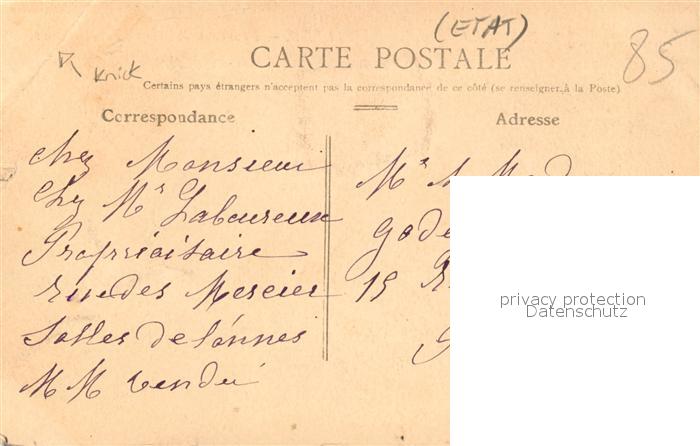 (ETAT)
CARTE POSTALE
85
Knick
Certains pays étrangers n'acceptent pas la correspondance de ce côté (se renseigner à la Poste)
Correspondance
Adresse
chez Monsieur
Chz Mr Laboureux
Propriaitaire
rue des Mercier
Salles de lonnes
M M Vendé
Mr
Gode
15 R
privacy protection
Datenschutz